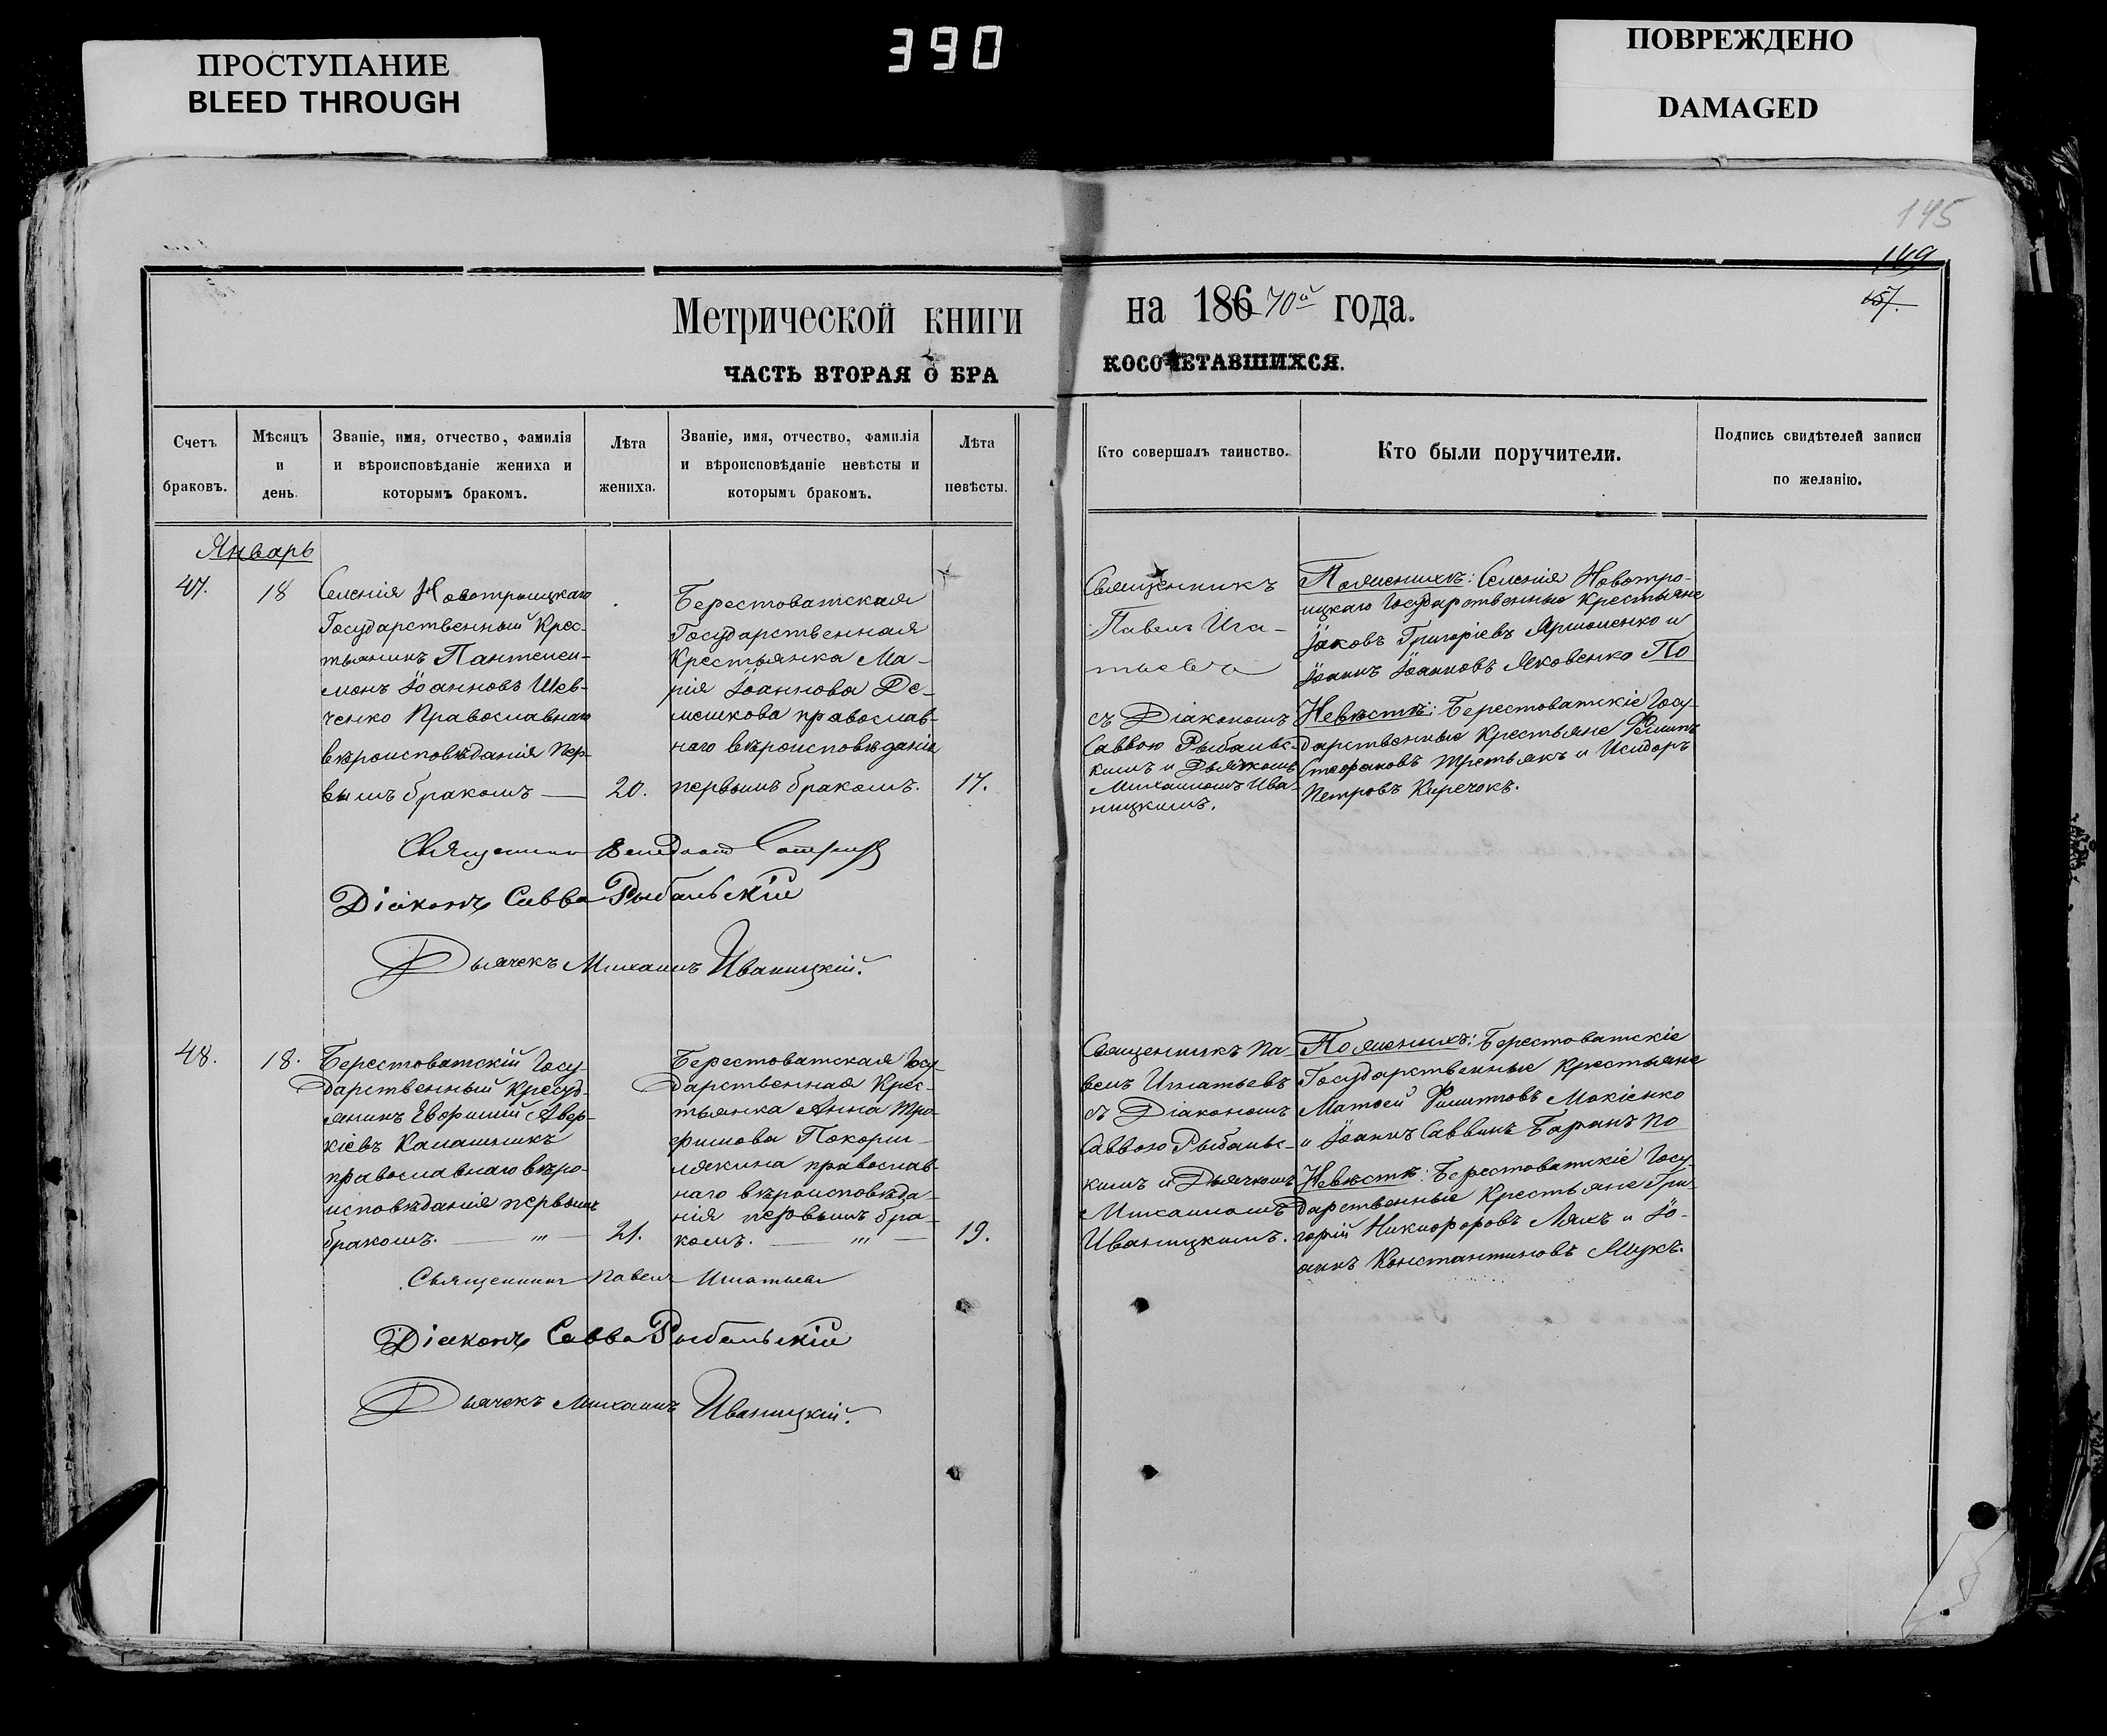 ПРОСТУПАНИЕ
BLEED THROUGH
390
ПОВРЕЖДЕНО
DAMAGED
145
149
157.
Метрической книги на 186 70й года.
ЧАСТЬ ВТОРАЯ О БРА КОСОЧЕТАВШИХСЯ.
Счетъ
браковъ.
Мѣсяцъ
и
день.
Званіе, имя, отчество, фамилія
и вѣроисповѣданіе жениха и
которымъ бракомъ.
Лѣта
жениха.
Званіе, имя, отчество, фамилія
и вѣроисповѣданіе невѣсты и
которымъ бракомъ.
Лѣта
невѣсты.
Кто совершалъ таинство.
Кто были поручители.
Подпись свидѣтелей записи
по желанію.
Январь
47.
18
Селенія Новотроицкаго
Государственный Крес-
тьянинъ Пантелеи-
монъ Іоанновъ Шев-
ченко Православнаго
вѣроисповѣданія пер-
вымъ бракомъ —
20.
Берестоватская
Государственная
Крестьянка Ма-
рія Іоаннова Де-
мешкова православ-
наго вѣроисповѣданія
первымъ бракомъ.
17.
Священникъ
Павелъ Игна-
тьевъ
съ Діакономъ
Саввою Рыбальс-
кимъ и Дьячкомъ
Михаиломъ Ива-
ницкимъ.
По женихѣ: Селенія Новотро-
ицкаго Государственные Крестьяне
Іаковъ Григоріевъ Ярмоленко и
Іоаннъ Іоанновъ Яковенко По
Невѣстѣ: Берестоватскіе Госу-
дарственные Крестьяне Филипъ
Стефановъ Третьякъ и Исидоръ
Петровъ Киречокъ.
Священникъ
Діаконъ Савва Рыбальскій
Дьячекъ Михаилъ Иваницкій.
48.
18.
Берестоватскій Госу-
дарственный Кресть-
янинъ Евфимій Авер-
кіевъ Калашникъ
православнаго вѣро-
исповѣданія первымъ
бракомъ. — „ —
21.
Берестоватская Госу-
дарственная Крес-
тьянка Анна Тро-
фимова Покорм-
лякина православ-
наго вѣроисповѣда-
нія первымъ бра-
комъ. — „ —
19.
Священникъ Па-
велъ Игнатьевъ
съ Діакономъ
Саввою Рыбальс-
кимъ и Дьячкомъ
Михаиломъ
Иваницкимъ.
По женихѣ: Берестоватскіе
Государственные Крестьяне
Матвей Филиповъ Мокіенко
и Іоаннъ Саввинъ Баранъ По
Невѣстѣ: Берестоватскіе Госу-
дарственные Крестьяне Гри-
горій Никифоровъ Ляхъ и Іо-
аннъ Константиновъ Мужъ.
Священникъ Павелъ Игнатьевъ
Діаконъ Савва Рыбальскій
Дьячекъ Михаилъ Иваницкій.